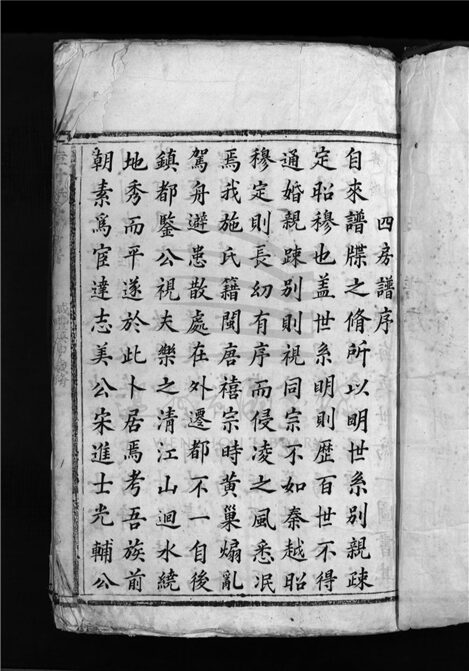 四房譜序
自來譜牒之脩所以明世系別親疎
定昭穆也盖世系明則歷百世不得
通婚親疎別則視同宗不如秦越昭
穆定則長幼有序而侵凌之風悉泯
焉我施氏籍閩唐禧宗時黃巢煽亂
駕舟避患散處在外遷都不一自後
鎮都鑒公視夫樂之清江山迴水繞
地秀而平遂於此卜居焉考吾族前
朝素爲宦達志美公宋進士光輔公